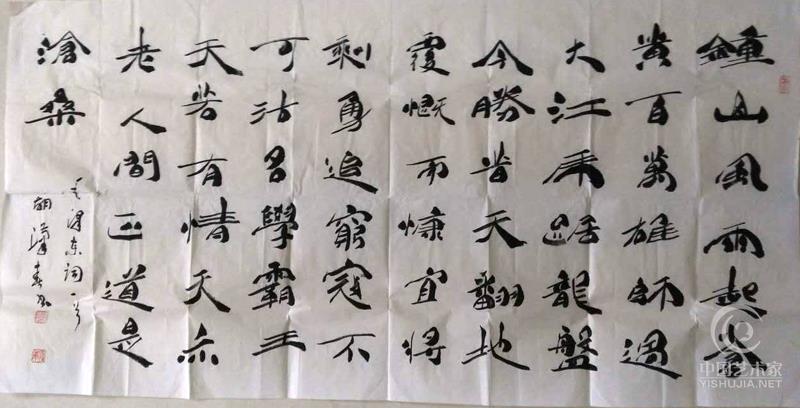 鍾山風雨起蒼
黃百萬雄師過
大江虎踞龍盤
今勝昔天翻地
覆慨而慷宜將
剩勇追窮寇不
可沽名學霸王
天若有情天亦
老人間正道是
滄桑
毛泽东词一首
胡
中国艺术家
YISHUJIA.NET